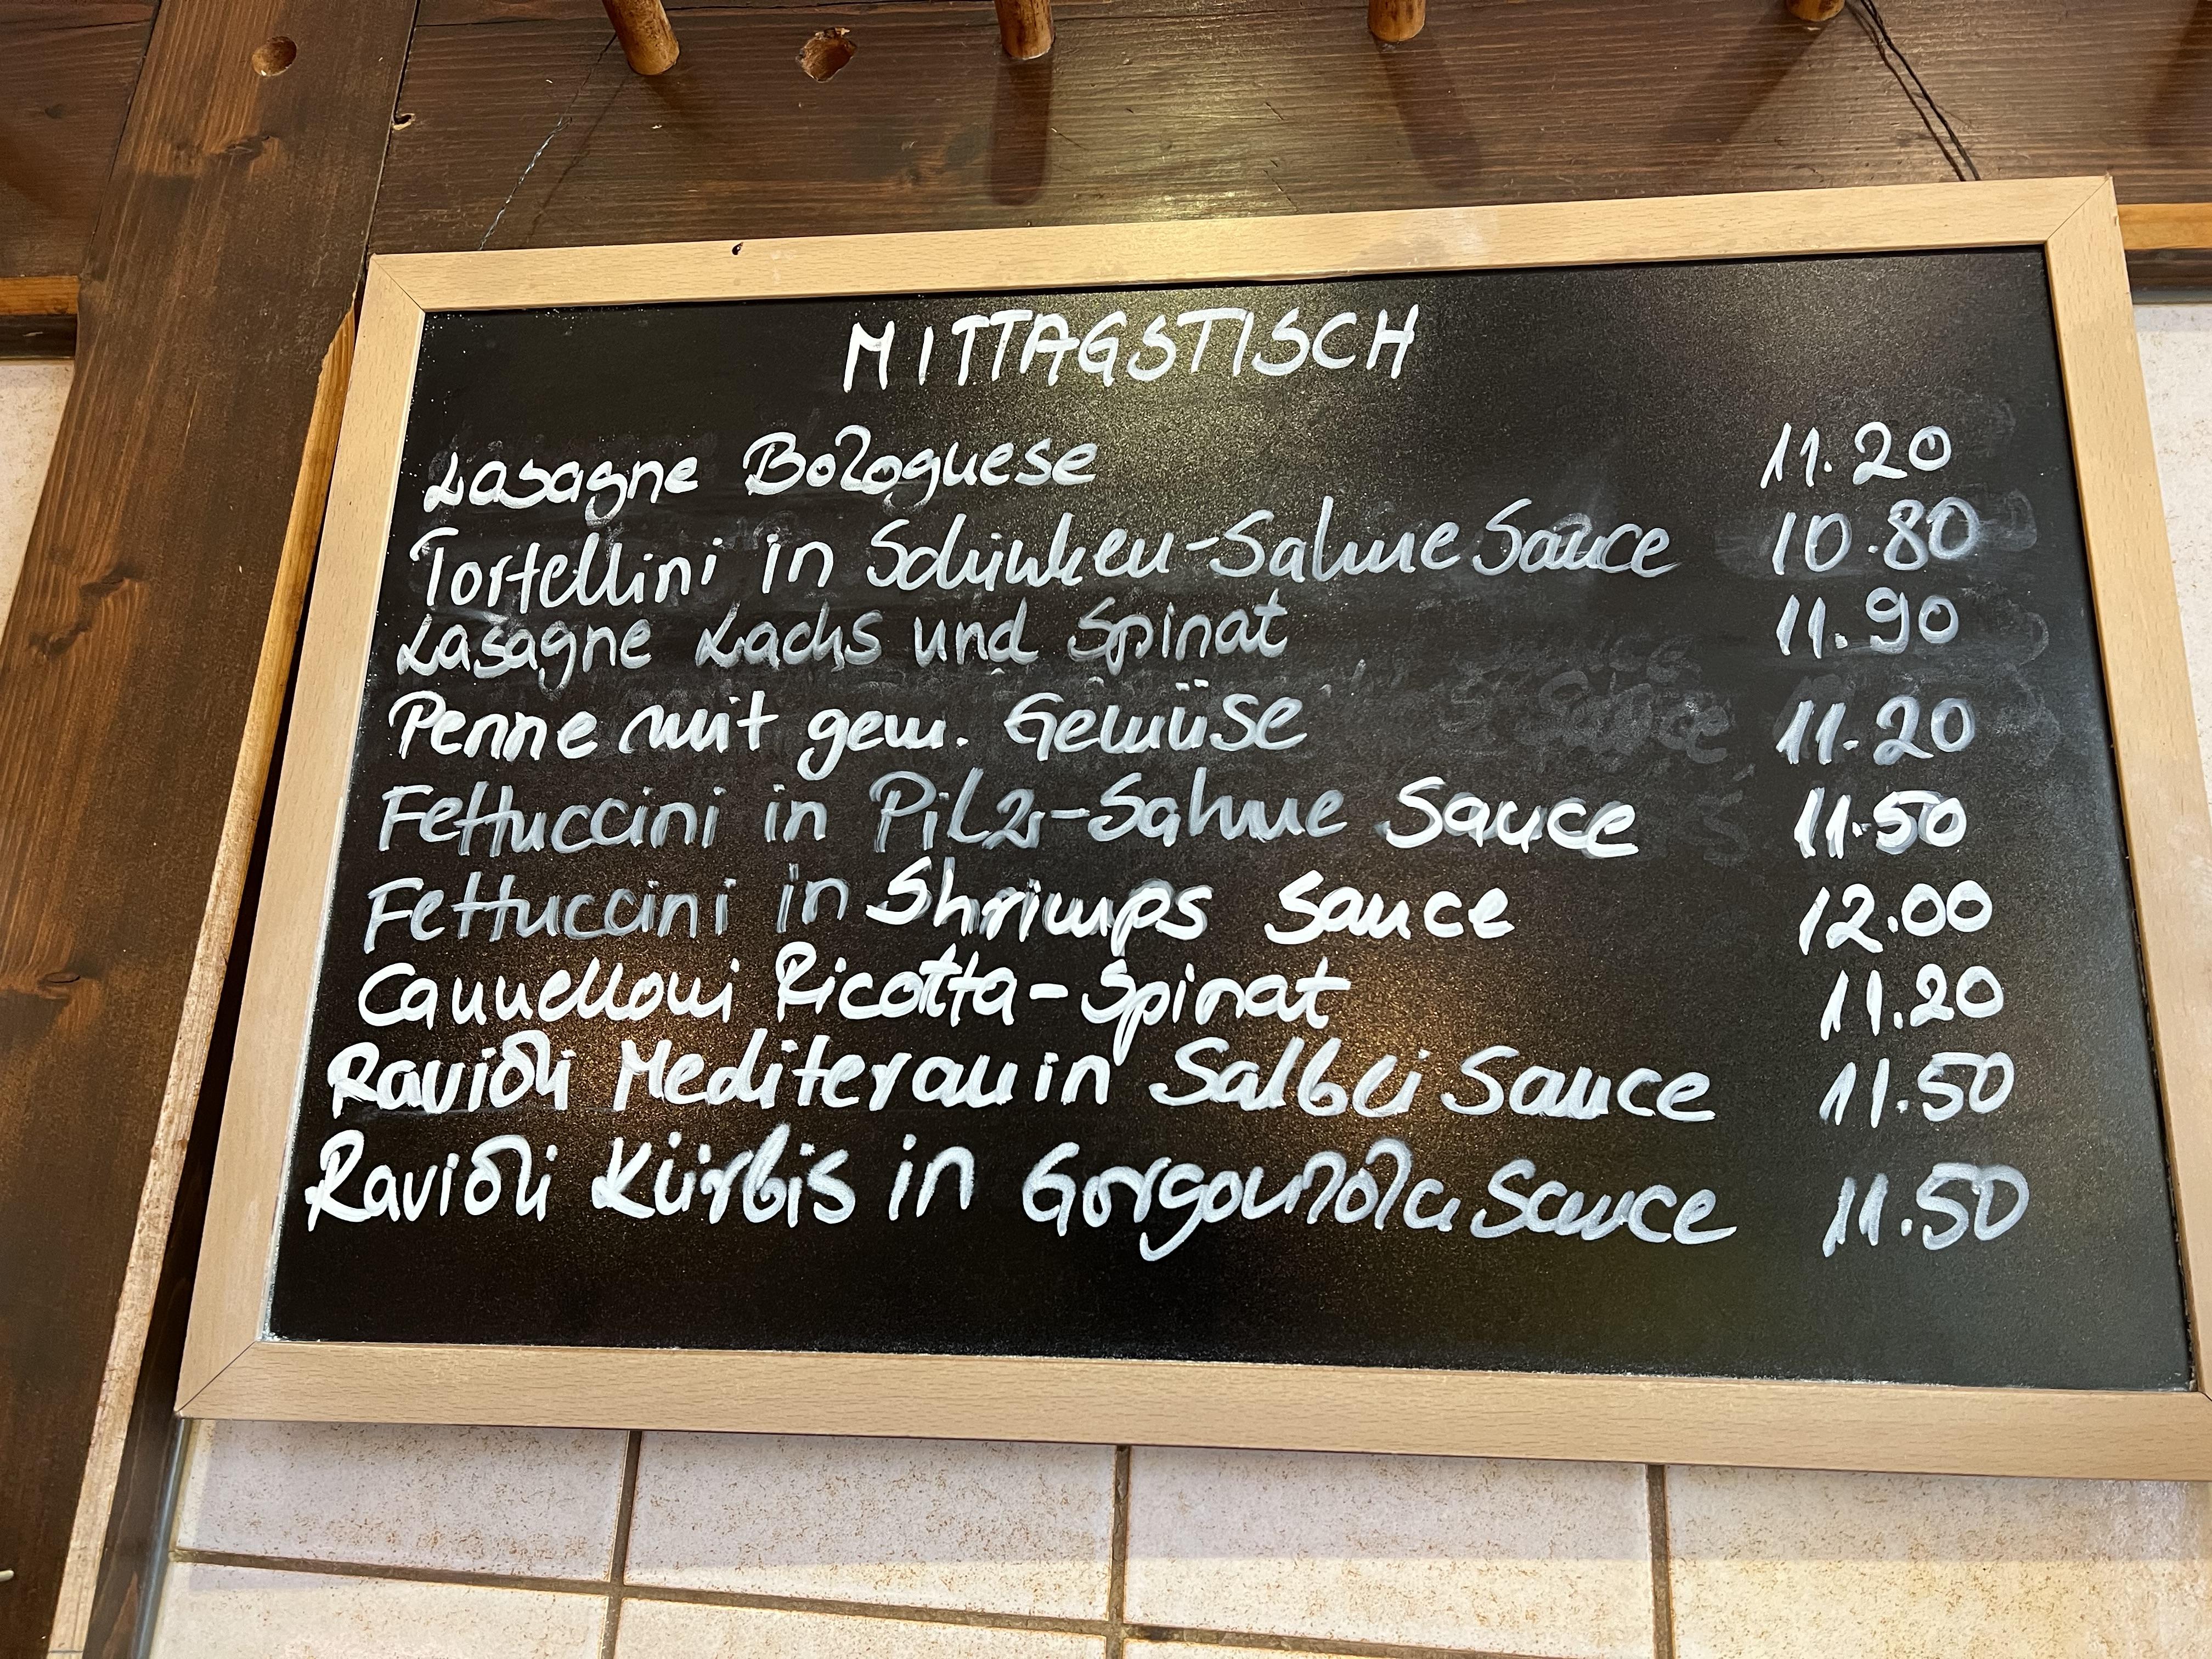 MITTAGSTISCH
Lasagne Bolognese 11.20
Tortellini in Schinken-Sahne Sauce 10.80
Lasagne Lachs und Spinat 11.90
Penne mit gem. Gemüse 11.20
Fettuccini in Pilz-Sahne Sauce 11.50
Fettuccini in Shrimps Sauce 12.00
Cannelloni Ricotta-Spinat 11.20
Ravioli Mediteran in Salbei Sauce 11.50
Ravioli Kürbis in Gorgonzola Sauce 11.50